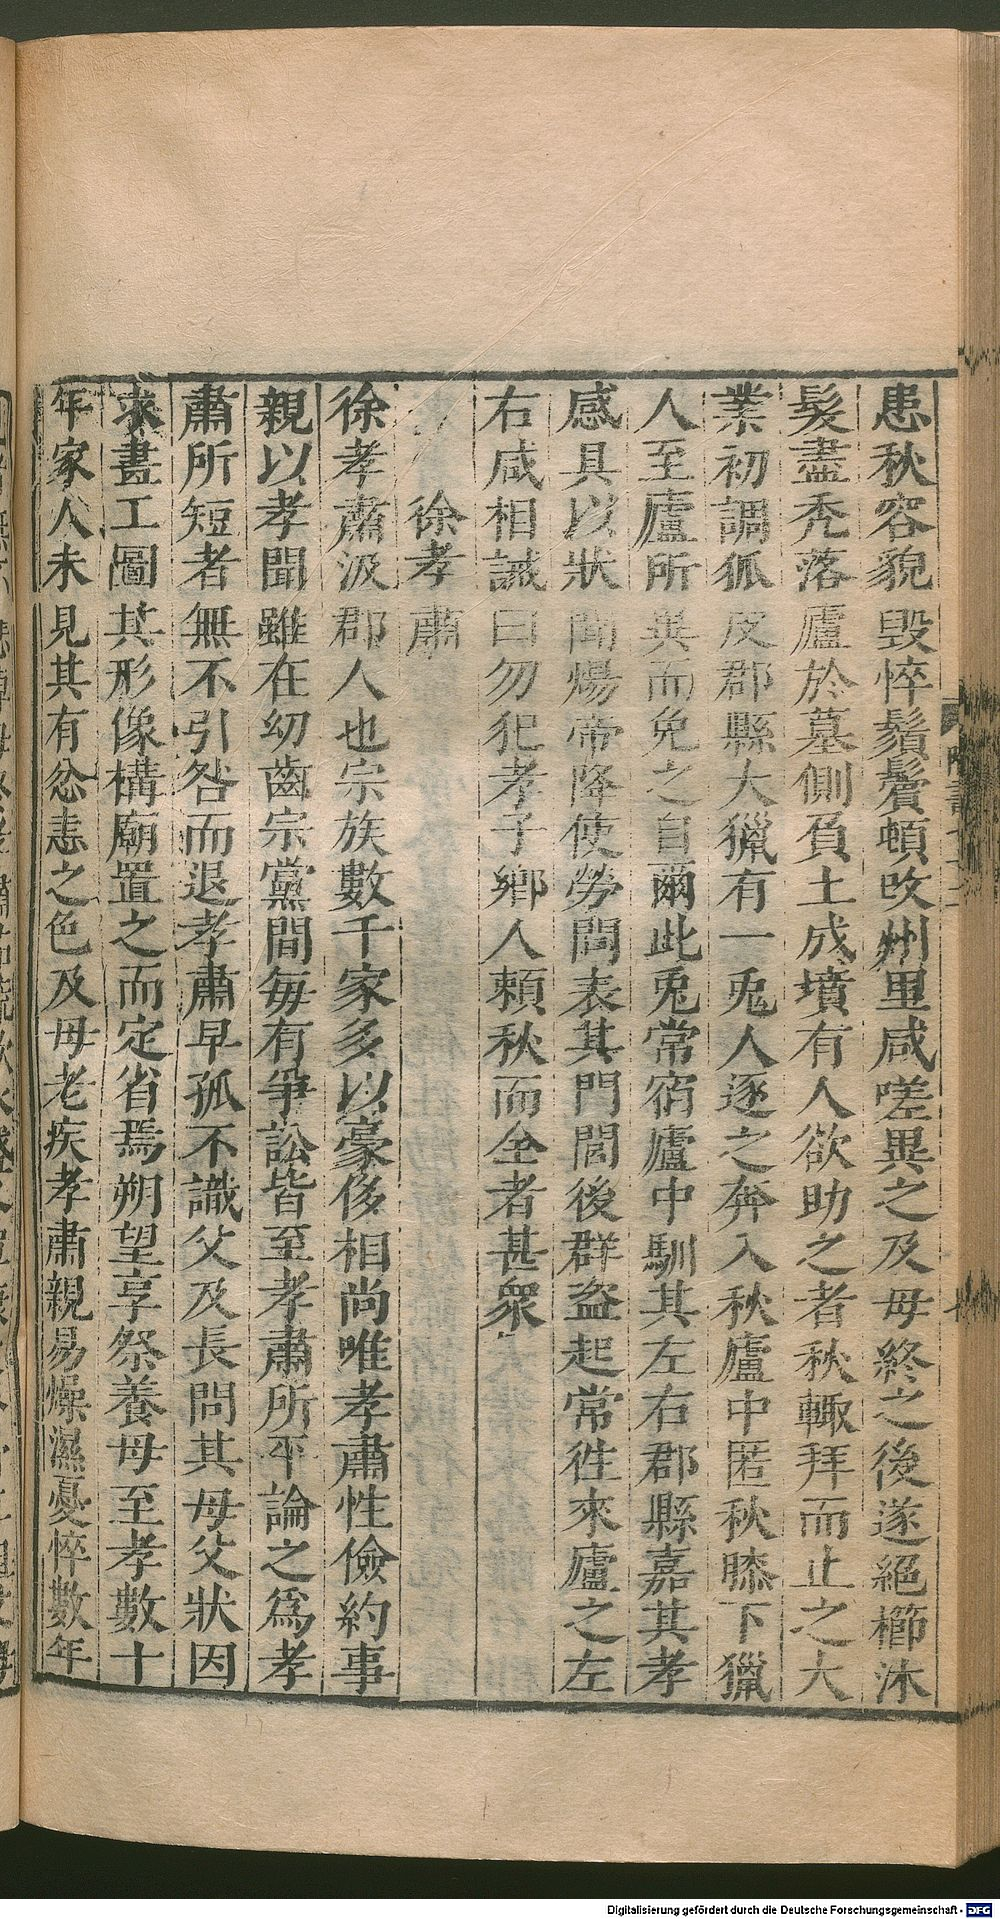 患秋容貌毀悴鬚鬢頓改州里咸嗟異之及母終之後遂絕櫛沐
髮盡禿落廬於墓側負土成墳有人欲助之者秋輙拜而止之大
業初調狐皮郡縣大獵有一兎人逐之奔入秋廬中匿秋膝下獵
人至廬所異而免之自爾此兎常宿廬中馴其左右郡縣嘉其孝
感具以狀聞煬帝降使勞問表其門閭後群盜起常徃來廬之左
右咸相誡曰勿犯孝子鄉人賴秋而全者甚衆
徐孝肅
徐孝肅汲郡人也宗族數千家多以豪侈相尚唯孝肅性儉約事
親以孝聞雖在幼齒宗黨間每有爭訟皆至孝肅所平論之爲孝
肅所短者無不引咎而退孝肅早孤不識父及長問其母父狀因
求畫工圖其形像構廟置之而定省焉朔望享祭養母至孝數十
年家人未見其有忿恚之色及母老疾孝肅親易燥濕憂悴數年
Digitalisierung gefördert durch die Deutsche Forschungsgemeinschaft - DFG